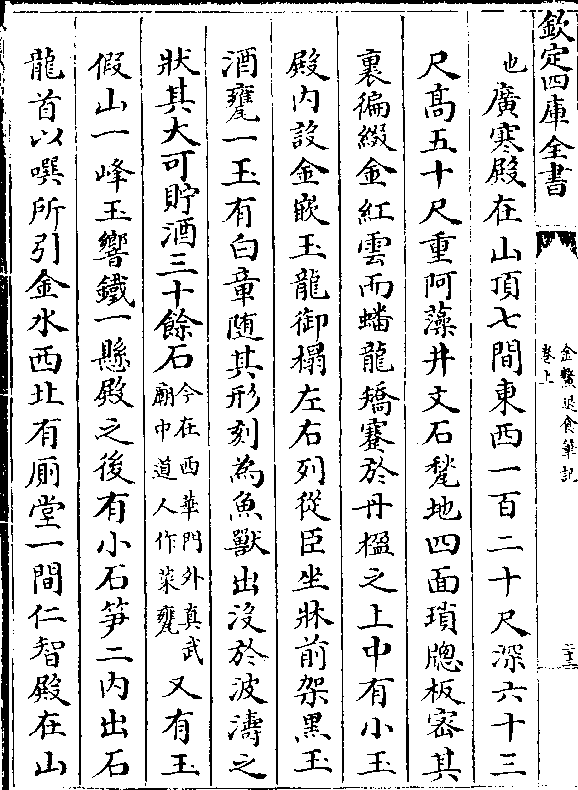 欽定四庫全書
金鰲退食筆記
卷上
也廣寒殿在山頂七間東西一百二十尺深六十三
尺高五十尺重阿藻井文石甃地四面瑣牕板宻其
裏徧綴金紅雲而蟠龍矯蹇於丹楹之上中有小玉
殿内設金嵌玉龍御榻左右列從臣坐牀前架黒玉
酒甕一玉有白章随其形刻為魚獸出没於波濤之
狀其大可貯酒三十餘石今在西華門外真武廟中道人作菜甕又有玉
假山一峰玉響鐵一懸殿之後有小石笋二内出石
龍首以噀所引金水西北有厠堂一間仁智殿在山